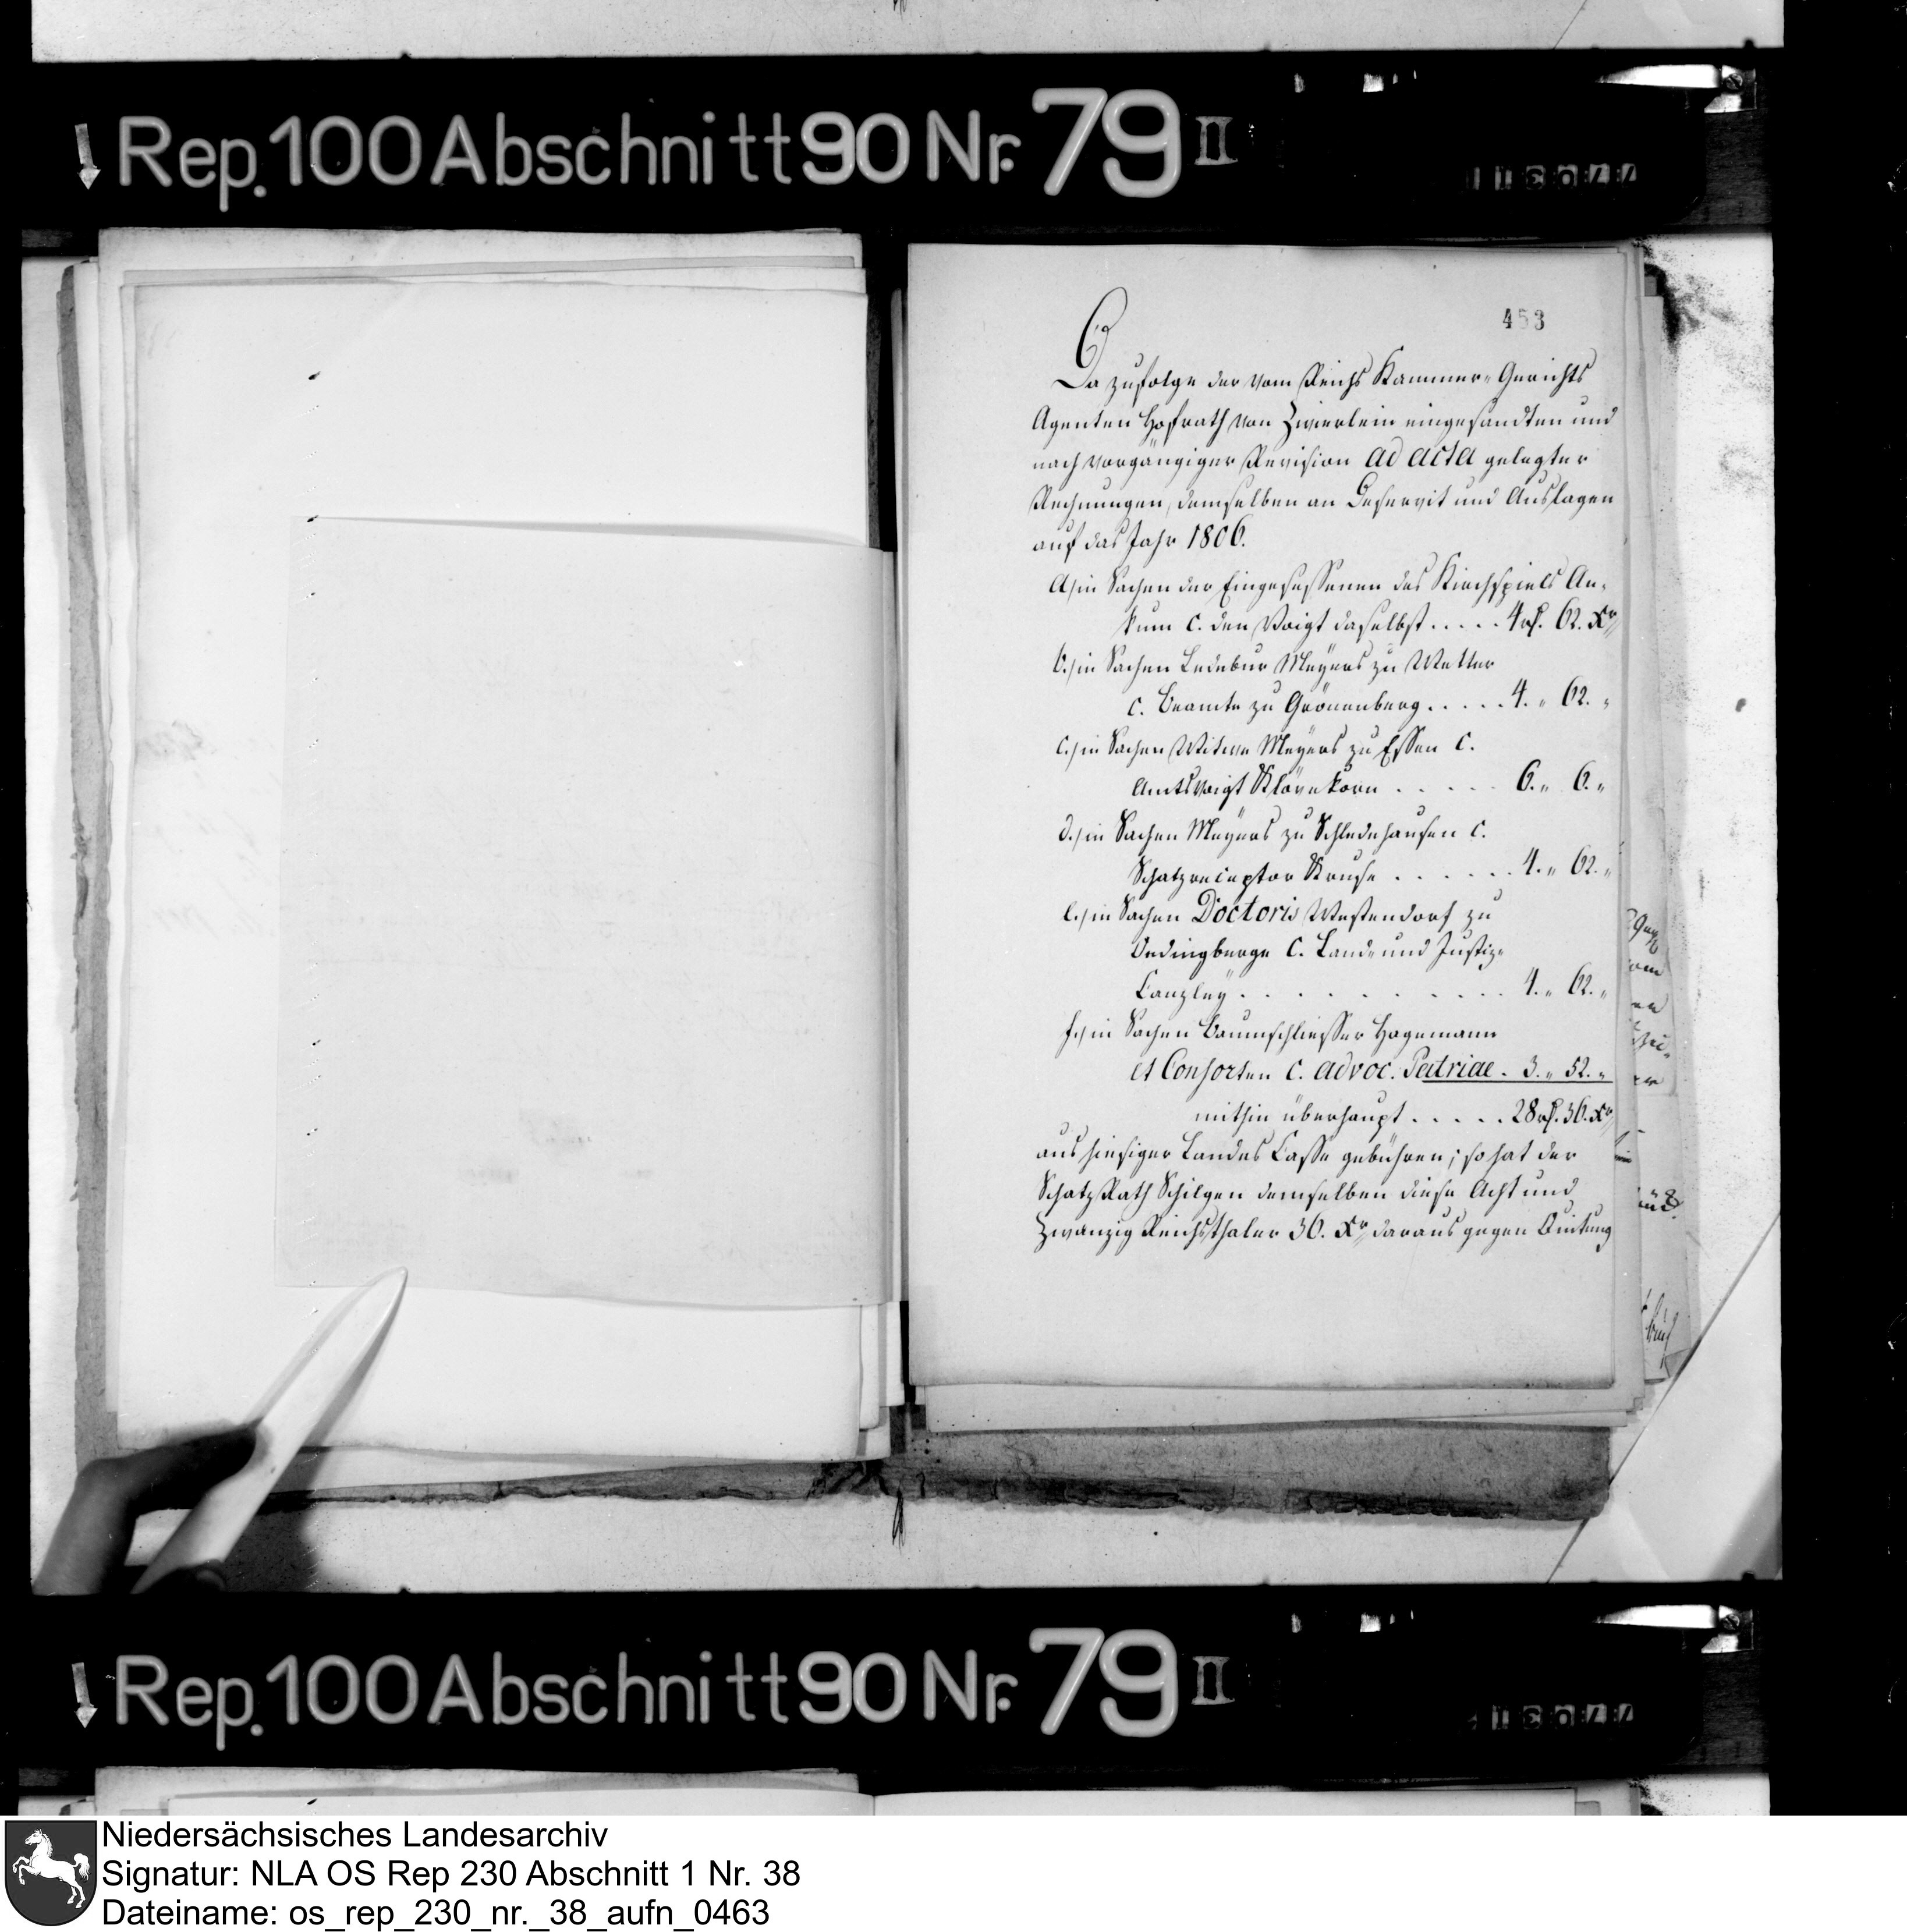 Rep. 100 Abschnitt 90 Nr. 79 II
453
Da zufolge der vom Reichs Kammer-Gerichts
Agenten Hofrath von Zwierlein eingesandten und
nach vorgängiger Revision ad acta gelegter
Rechnungen, demselben an Deservit und Auslagen
auf das Jahr 1806.
a/ in Sachen der Eingesessenen des Kirchspiels An-
kum c. den Voigt daselbst ..... 4 rl. 62. Xr
b./ in Sachen Ledebur Meyers zu Wetter
c. Beamte zu Grönenberg ..... 4. " 62. "
c./ in Sachen Witwe Meyers zu Essen c.
Amtsvoigt Klövekorn ..... 6. " 6. "
d./ in Sachen Meyers zu Schledehausen c.
Schatzreceptor Kruse ...... 4. " 62. "
e./ in Sachen Doctoris Westendorf zu
Dedingberge c. Land- und Justiz-
Canzley ........... 4. " 62. "
f./ in Sachen Baumschliesser Hagemann
et Consorten c. advoc. Patriae . 3. " 52. "
mithin überhaupt ..... 28 rl. 36. Xr
aus hiesiger Landes Casse gebühren; so hat der
SchatzRath Schilgen demselben diese Acht und
Zwanzig Reichsthaler 36. Xr daraus gegen Quitung
Rep. 100 Abschnitt 90 Nr. 79 II
Niedersächsisches Landesarchiv
Signatur: NLA OS Rep 230 Abschnitt 1 Nr. 38
Dateiname: os_rep_230_nr._38_aufn_0463